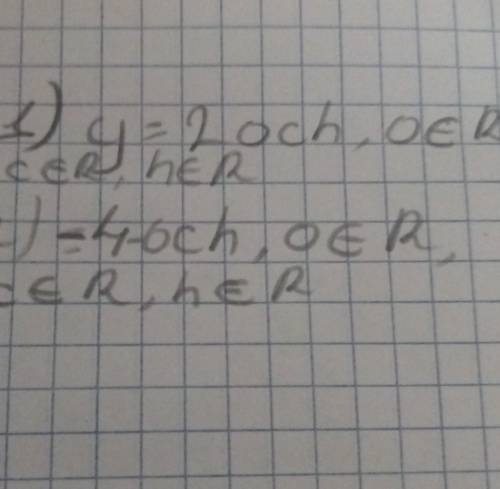 1) y = 2och, o∈R
c∈R, h∈R
) = 4och, o∈R,
c∈R, h∈R